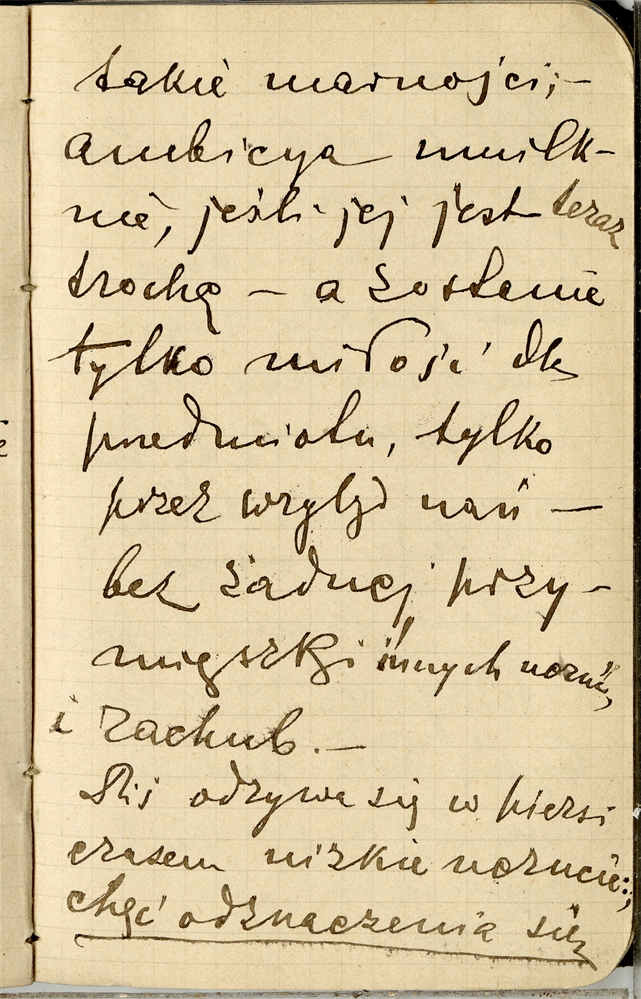 takie marności; –
ambicya umilk-
nie, jeśli jej jest teraz
trochę – a zostanie
tylko miłość dla
przedmiotu, tylko
przez wzgląd nań –
bez żadnej przy-
mięszki innych uczuć,
i rachub. –
Dziś odzywa się w piersi
czasem nizkie uczucie:
chęć odznaczenia się,